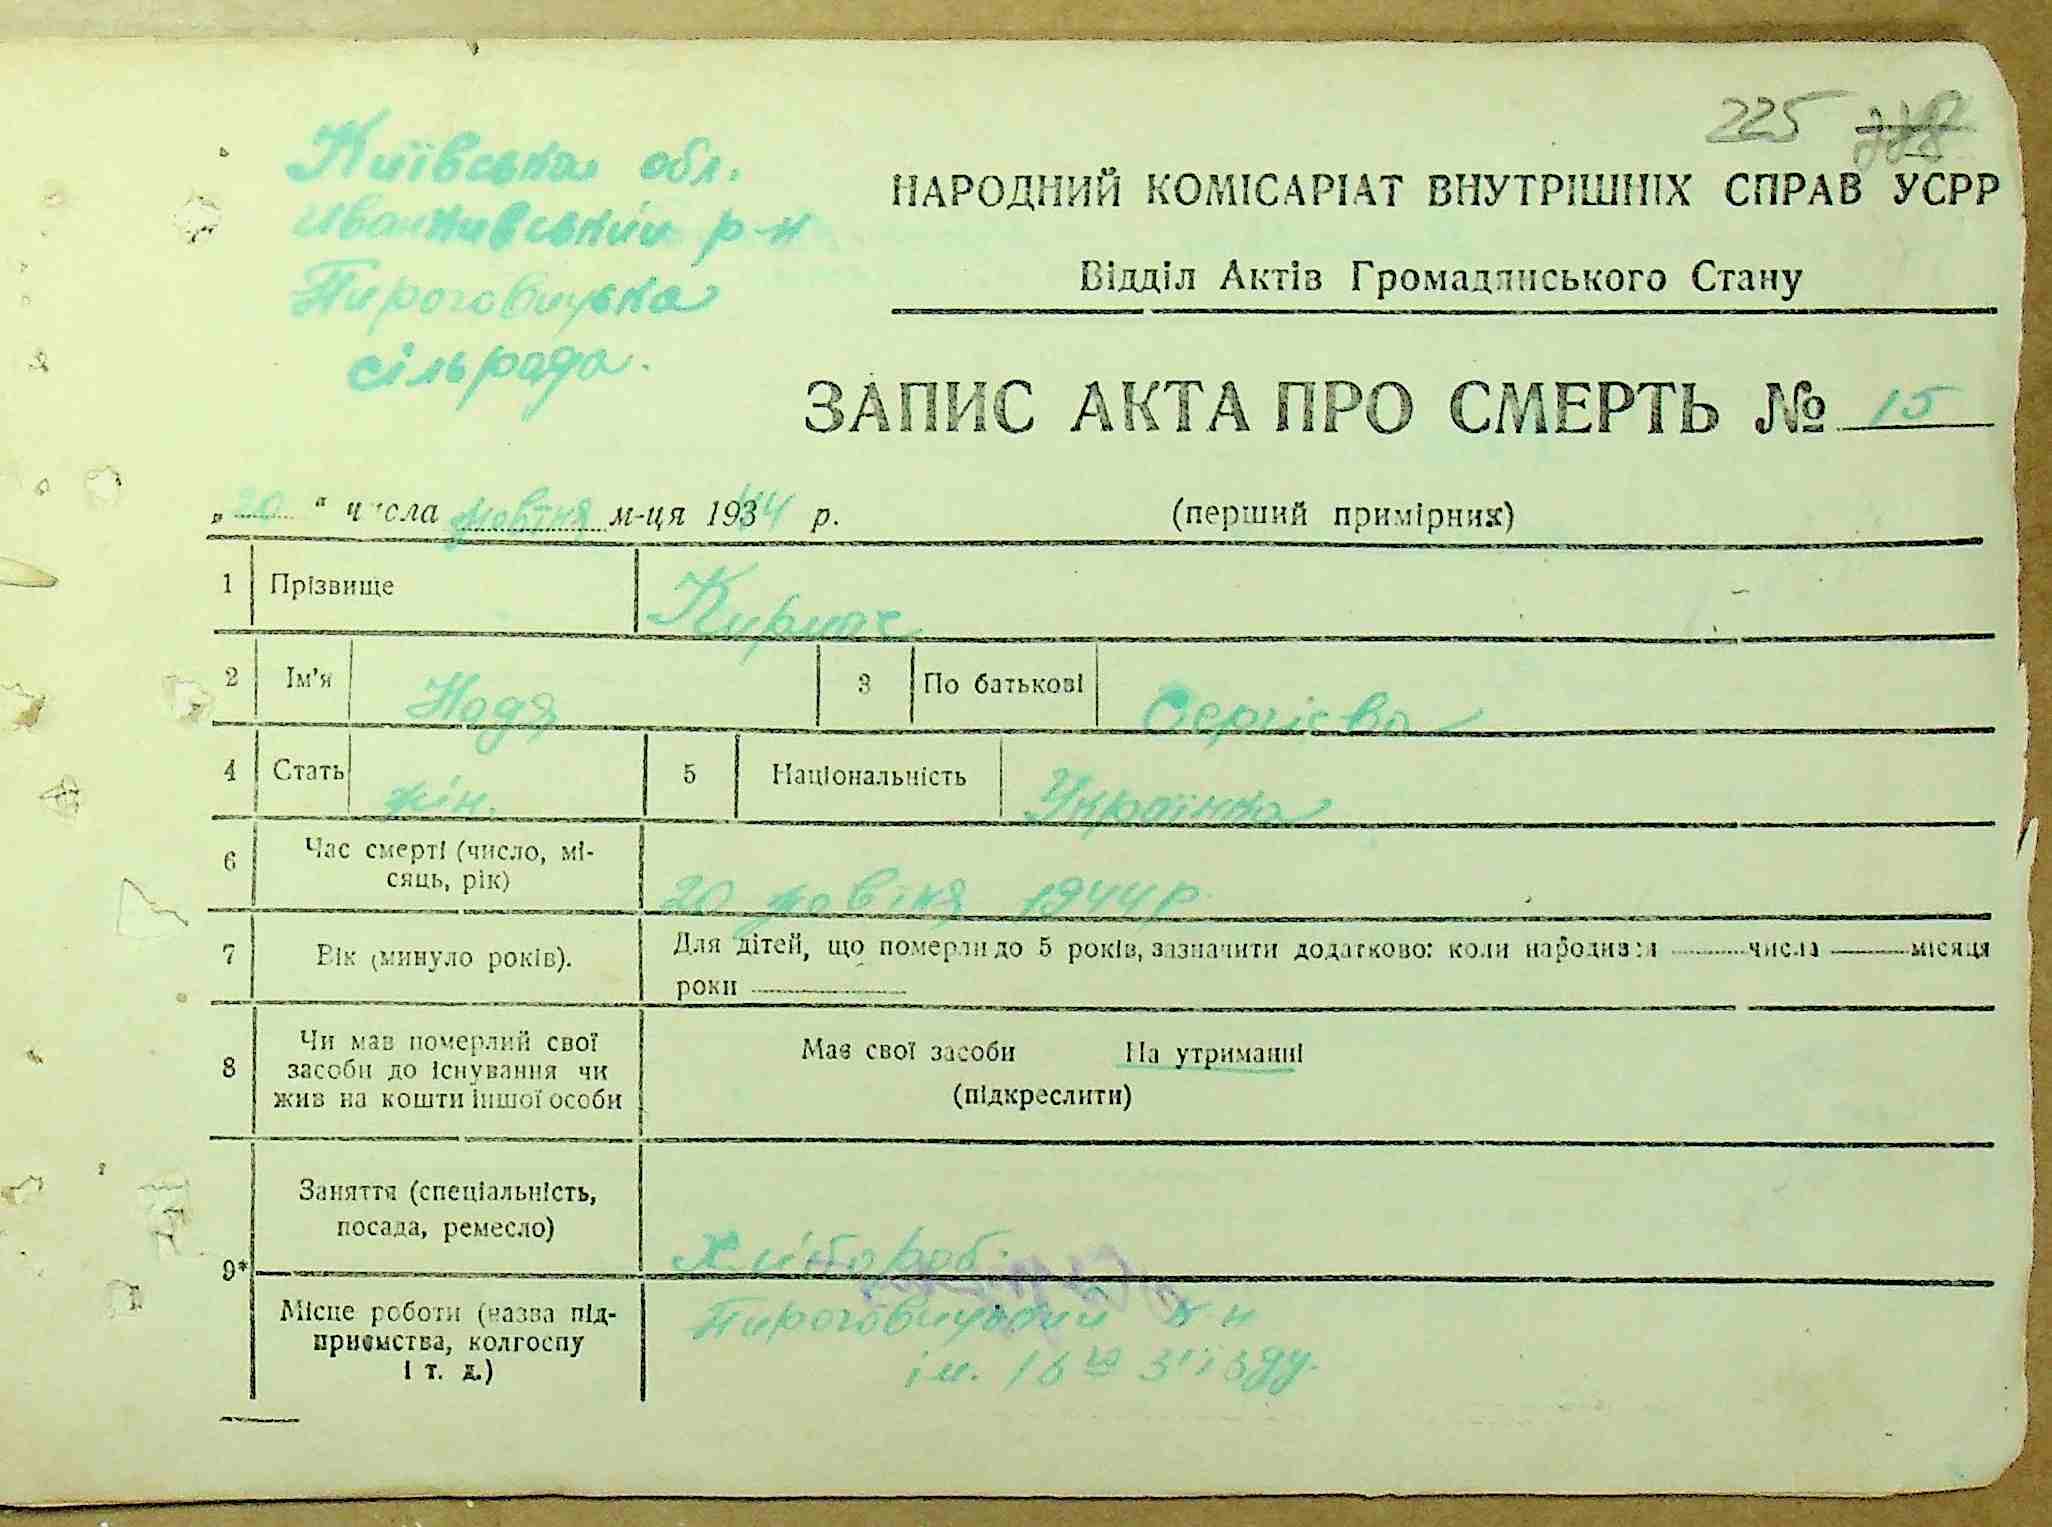 225
Київська обл.
Іванківський р-н
Пироговицька
сільрада.
НАРОДНИЙ КОМІСАРІАТ ВНУТРІШНІХ СПРАВ УСРР
Відділ Актів Громадянського Стану
ЗАПИС АКТА ПРО СМЕРТЬ № 15
„20“ числа жовтня м-ця 1944 р.
(перший примірник)
1 Прізвище Кирпач
2 Ім'я Надя 3 По батькові Сергієва
4 Стать жін. 5 Національність Українка
6 Час смерті (число, мі-
сяць, рік) 20 жовтня 1944 р.
7 Вік (минуло років). Для дітей, що померли до 5 років, зазначити додатково: коли народився числа місяця
роки
8 Чи мав померлий свої
засоби до існування чи
жив на кошти іншої особи
Має свої засоби На утриманні
(підкреслити)
9* Заняття (спеціальність,
посада, ремесло) Хлібороб
Місце роботи (назва під-
приємства, колгоспу
і т. д.)
Пироговицький к-п
ім. 18го з'їзду.